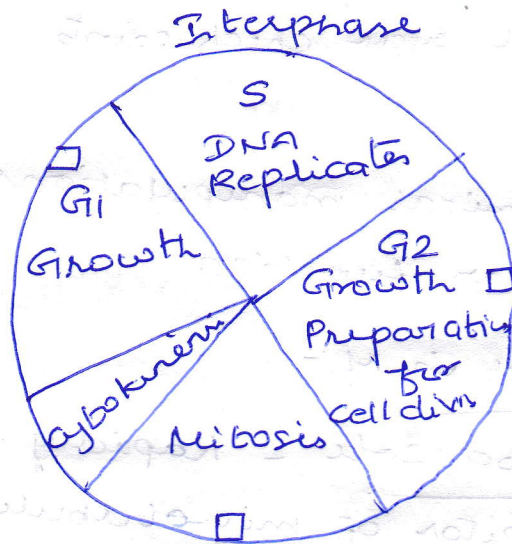 Interphase
S
DNA
Replicates
G1
Growth
G2
Growth
Preparation
for
cell divn
Cytokinesis
Mitosis